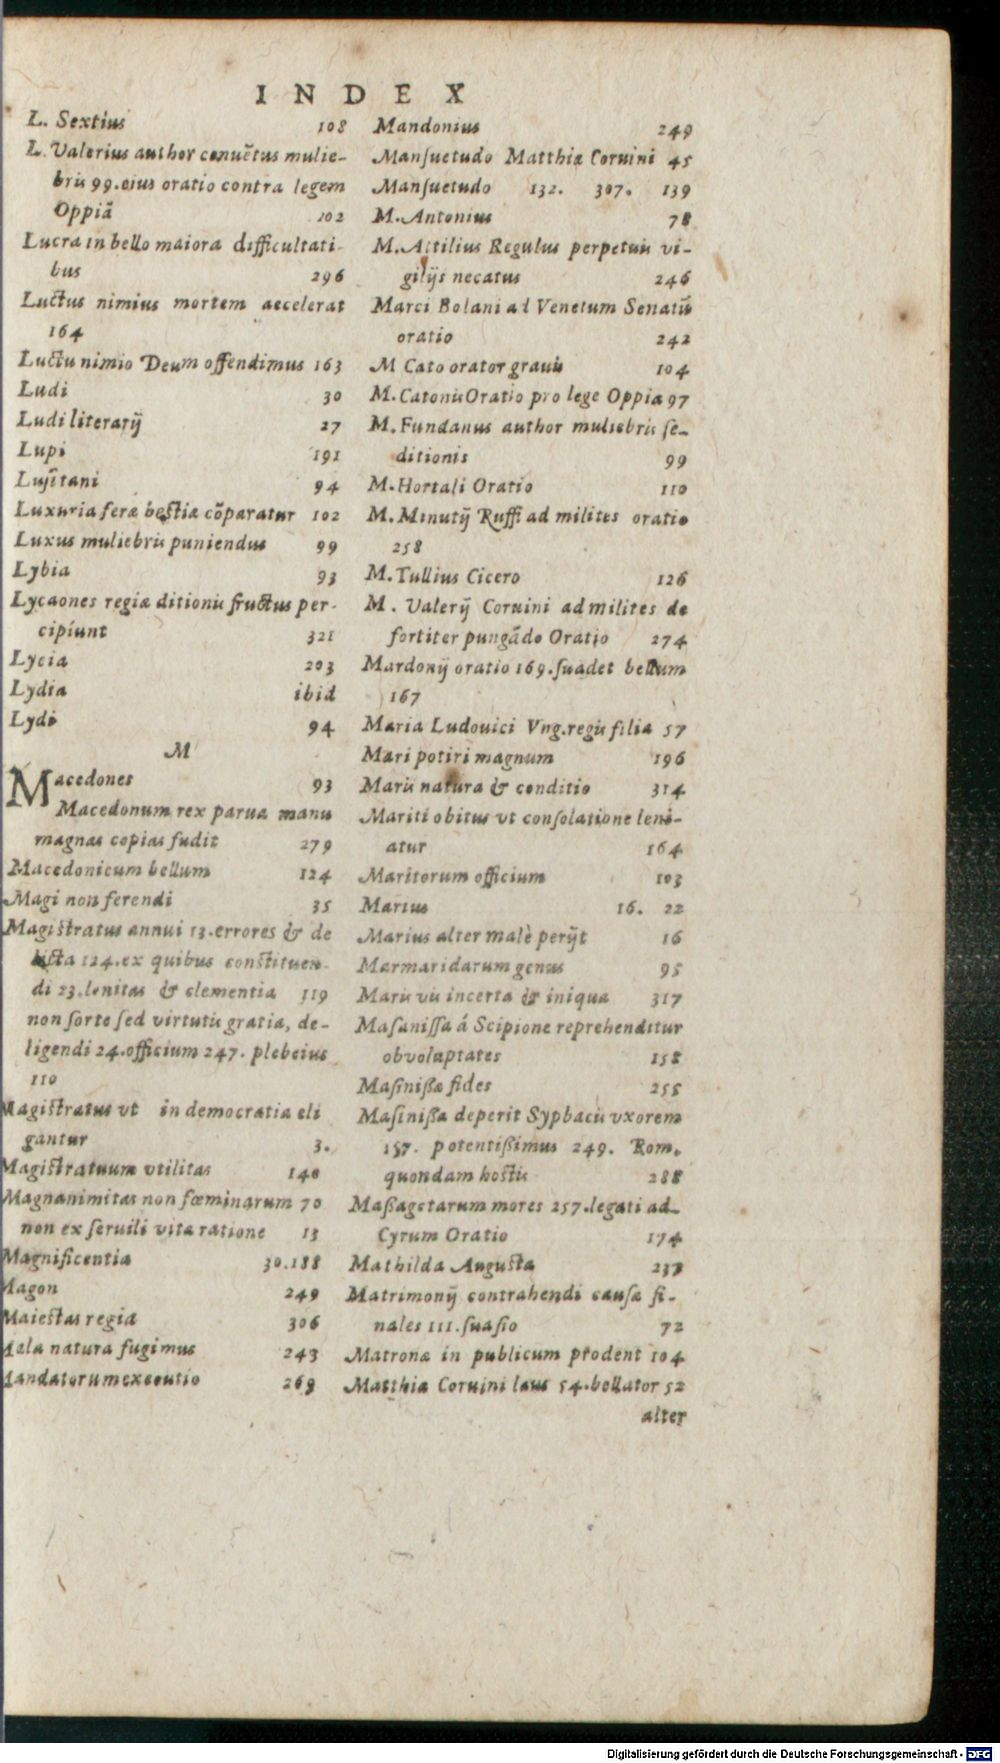 INDEX
L. Sextius 108
L. Valerius author conuẽtus mulie-
bris 99. eius oratio contra legem
Oppiã 102
Lucra in bello maiora difficultati-
bus 296
Luctus nimius mortem accelerat
164
Luctu nimio Deum offendimus 163
Ludi 30
Ludi literarij 27
Lupi 191
Lusitani 94
Luxuria feræ bestiæ cõparatur 102
Luxus muliebris puniendus 99
Lybia 93
Lycaones regiæ ditionis fructus per-
cipiunt 321
Lycia 203
Lydia ibid
Lydi 94
M
Macedones 93
Macedonum rex parua manu
magnas copias fudit 279
Macedonicum bellum 124
Magi non ferendi 35
Magistratus annui 13. errores & de
licta 124. ex quibus constituen-
di 23. lenitas & clementia 119
non sorte sed virtutis gratia, de-
ligendi 24. officium 247. plebeius
110
Magistratus vt in democratia eli
gantur 3.
Magistratuum vtilitas 140
Magnanimitas non fœminarum 70
non ex seruili vitæ ratione 13
Magnificentia 30. 188
Magon 249
Maiestas regia 306
Mala natura fugimus 243
Mandatorum executio 269
Mandonius 249
Mansuetudo Matthiæ Coruini 45
Mansuetudo 132. 307. 139
M. Antonius 78
M. Attilius Regulus perpetuis vi-
gilijs necatus 246
Marci Bolani ad Venetum Senatũ
oratio 242
M Cato orator grauis 104
M. Catonis Oratio pro lege Oppia 97
M. Fundanus author muliebris se-
ditionis 99
M. Hortali Oratio 110
M. Minutij Ruffi ad milites oratio
258
M. Tullius Cicero 126
M. Valerij Coruini ad milites de
fortiter pungãdo Oratio 274
Mardonij oratio 169. suadet bellum
167
Maria Ludouici Vng. regis filia 57
Mari potiri magnum 196
Maris natura & conditio 314
Mariti obitus vt consolatione leni-
atur 164
Maritorum officium 103
Marius 16. 22
Marius alter malè perijt 16
Marmaridarum genus 95
Maris vis incerta & iniqua 317
Masanissa á Scipione reprehenditur
ob voluptates 158
Masinißæ fides 255
Masinißa deperit Syphacis vxorem
157. potentißimus 249. Rom.
quondam hostis 288
Maßagetarum mores 257. legati ad
Cyrum Oratio 174
Mathilda Augusta 237
Matrimonij contrahendi causæ fi-
nales III. suasio 72
Matronæ in publicum prodent 104
Matthiæ Coruini laus 54. bellator 52
alter
Digitalisierung gefördert durch die Deutsche Forschungsgemeinschaft - DFG